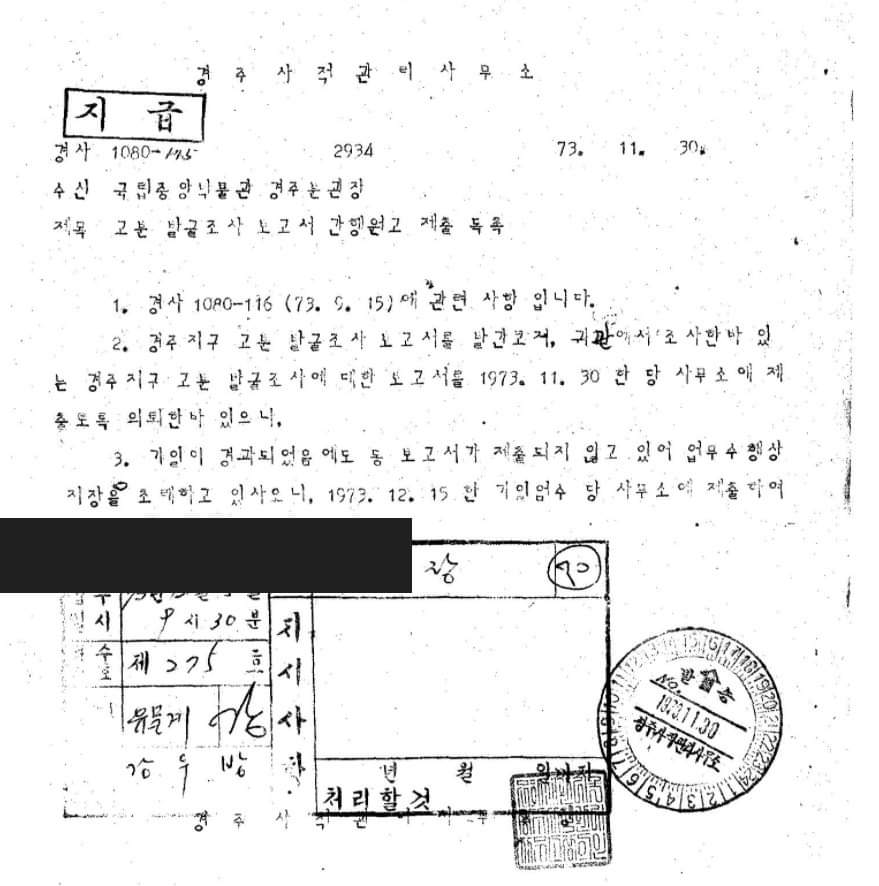 경주사적관리사무소
지급
경사 1080-175 2934 73. 11. 30.
수신 국립중앙박물관 경주분관장
제목 고분 발굴조사 보고서 간행원고 제출 독촉
1. 경사 1080-116 (73. 9. 15)에 관련 사항 입니다.
2. 경주지구 고분 발굴조사 보고서를 발간코저, 귀관에서 조사한바 있
는 경주지구 고분 발굴조사에 대한 보고서를 1973. 11. 30 한 당 사무소에 제
출토록 의뢰한바 있으니,
3. 기일이 경과되었음에도 동 보고서가 제출되지 않고 있어 업무수행상
지장을 초래하고 있사오니, 1973. 12. 15 한 기일엄수 당 사무소에 제출하여
장
시 9시 30분
지시사
제 275 호
유물계
강우방
년 월 일까지
처리할것
발송
NO.
1973.11.30
경주사적관리사무소
경주사적관리사무소